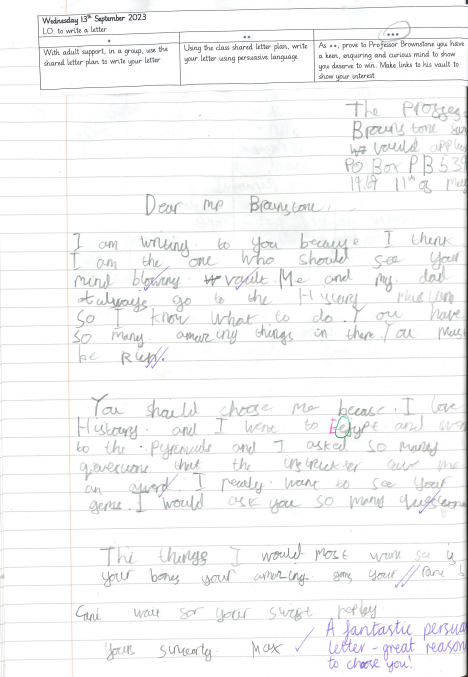 Wednesday 13th September 2023
LO: to write a letter
*
With adult support, in a group, use the
shared letter plan to write your letter
**
Using the class shared letter plan, write
your letter using persuasive language
***
As **, prove to Professor Brownstone you have
a keen, enquiring and curious mind to show
you deserve to win. Make links to his vault to
show your interest
The
PO Box PB
11th of
Dear mp Brownstone
I am writing to you because I think
I am the one who should see your
mind blowing vault. Me and my dad
always go to the History
So I know what to do. You have
So many amazing things in there. You must
be
You should choose me becase I love
History and I went to Egypt and
to the pyramids and I asked so many
that the me
an award. I really want to see your
gems. I would ask you so many questions
The things I would most want see is
your bones your amazing gems your
Cant wait for your swift reply
Yours sincerly Max
A fantastic persua
letter - great reason
to choose you!